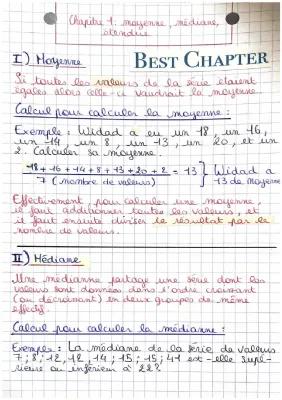 Chapitre 1: moyenne, médiane,
étendue
I) Moyenne
BEST CHAPTER
Si toutes les valeurs de la série étaient
égales alors celle-ci vaudrait la moyenne.
Calcul pour calculer la moyenne:
Exemple: Widad a eu un 18, un 16,
un 14, un 8, un 13, un 20, et un
2. Calculer sa moyenne.
18+16+14+8+13+20+2 = 13 } Widad a
7 (nombre de valeurs) 13 de moyenne
Effectivement, pour calculer une moyenne,
il faut additionner toutes les valeurs, et
il faut ensuite diviser le résultat par le
nombre de valeurs.
II) Médiane
Une médianne partage une série dont les
valeurs sont données dans l'ordre croissant
(ou décroissant) en deux groupes de même
effectif.
Calcul pour calculer la médianne:
Exemples: La médiane de la série de valeurs
7; 8; 12; 12; 14; 15; 15; 41 est-elle supé-
rieure ou inférieur à 22?